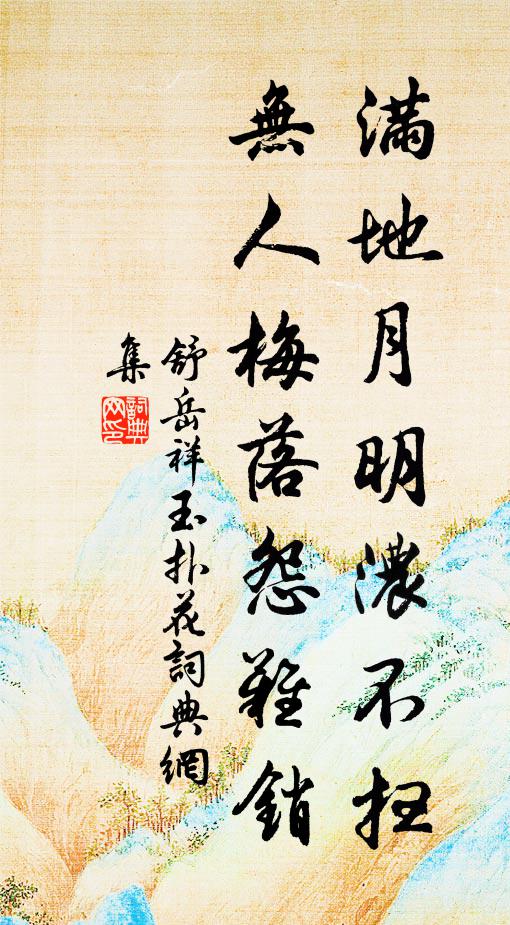 滿地月明濃不扫
無人梅落怨難銷
舒岳祥玉扑花詞典網
集
詞典网印